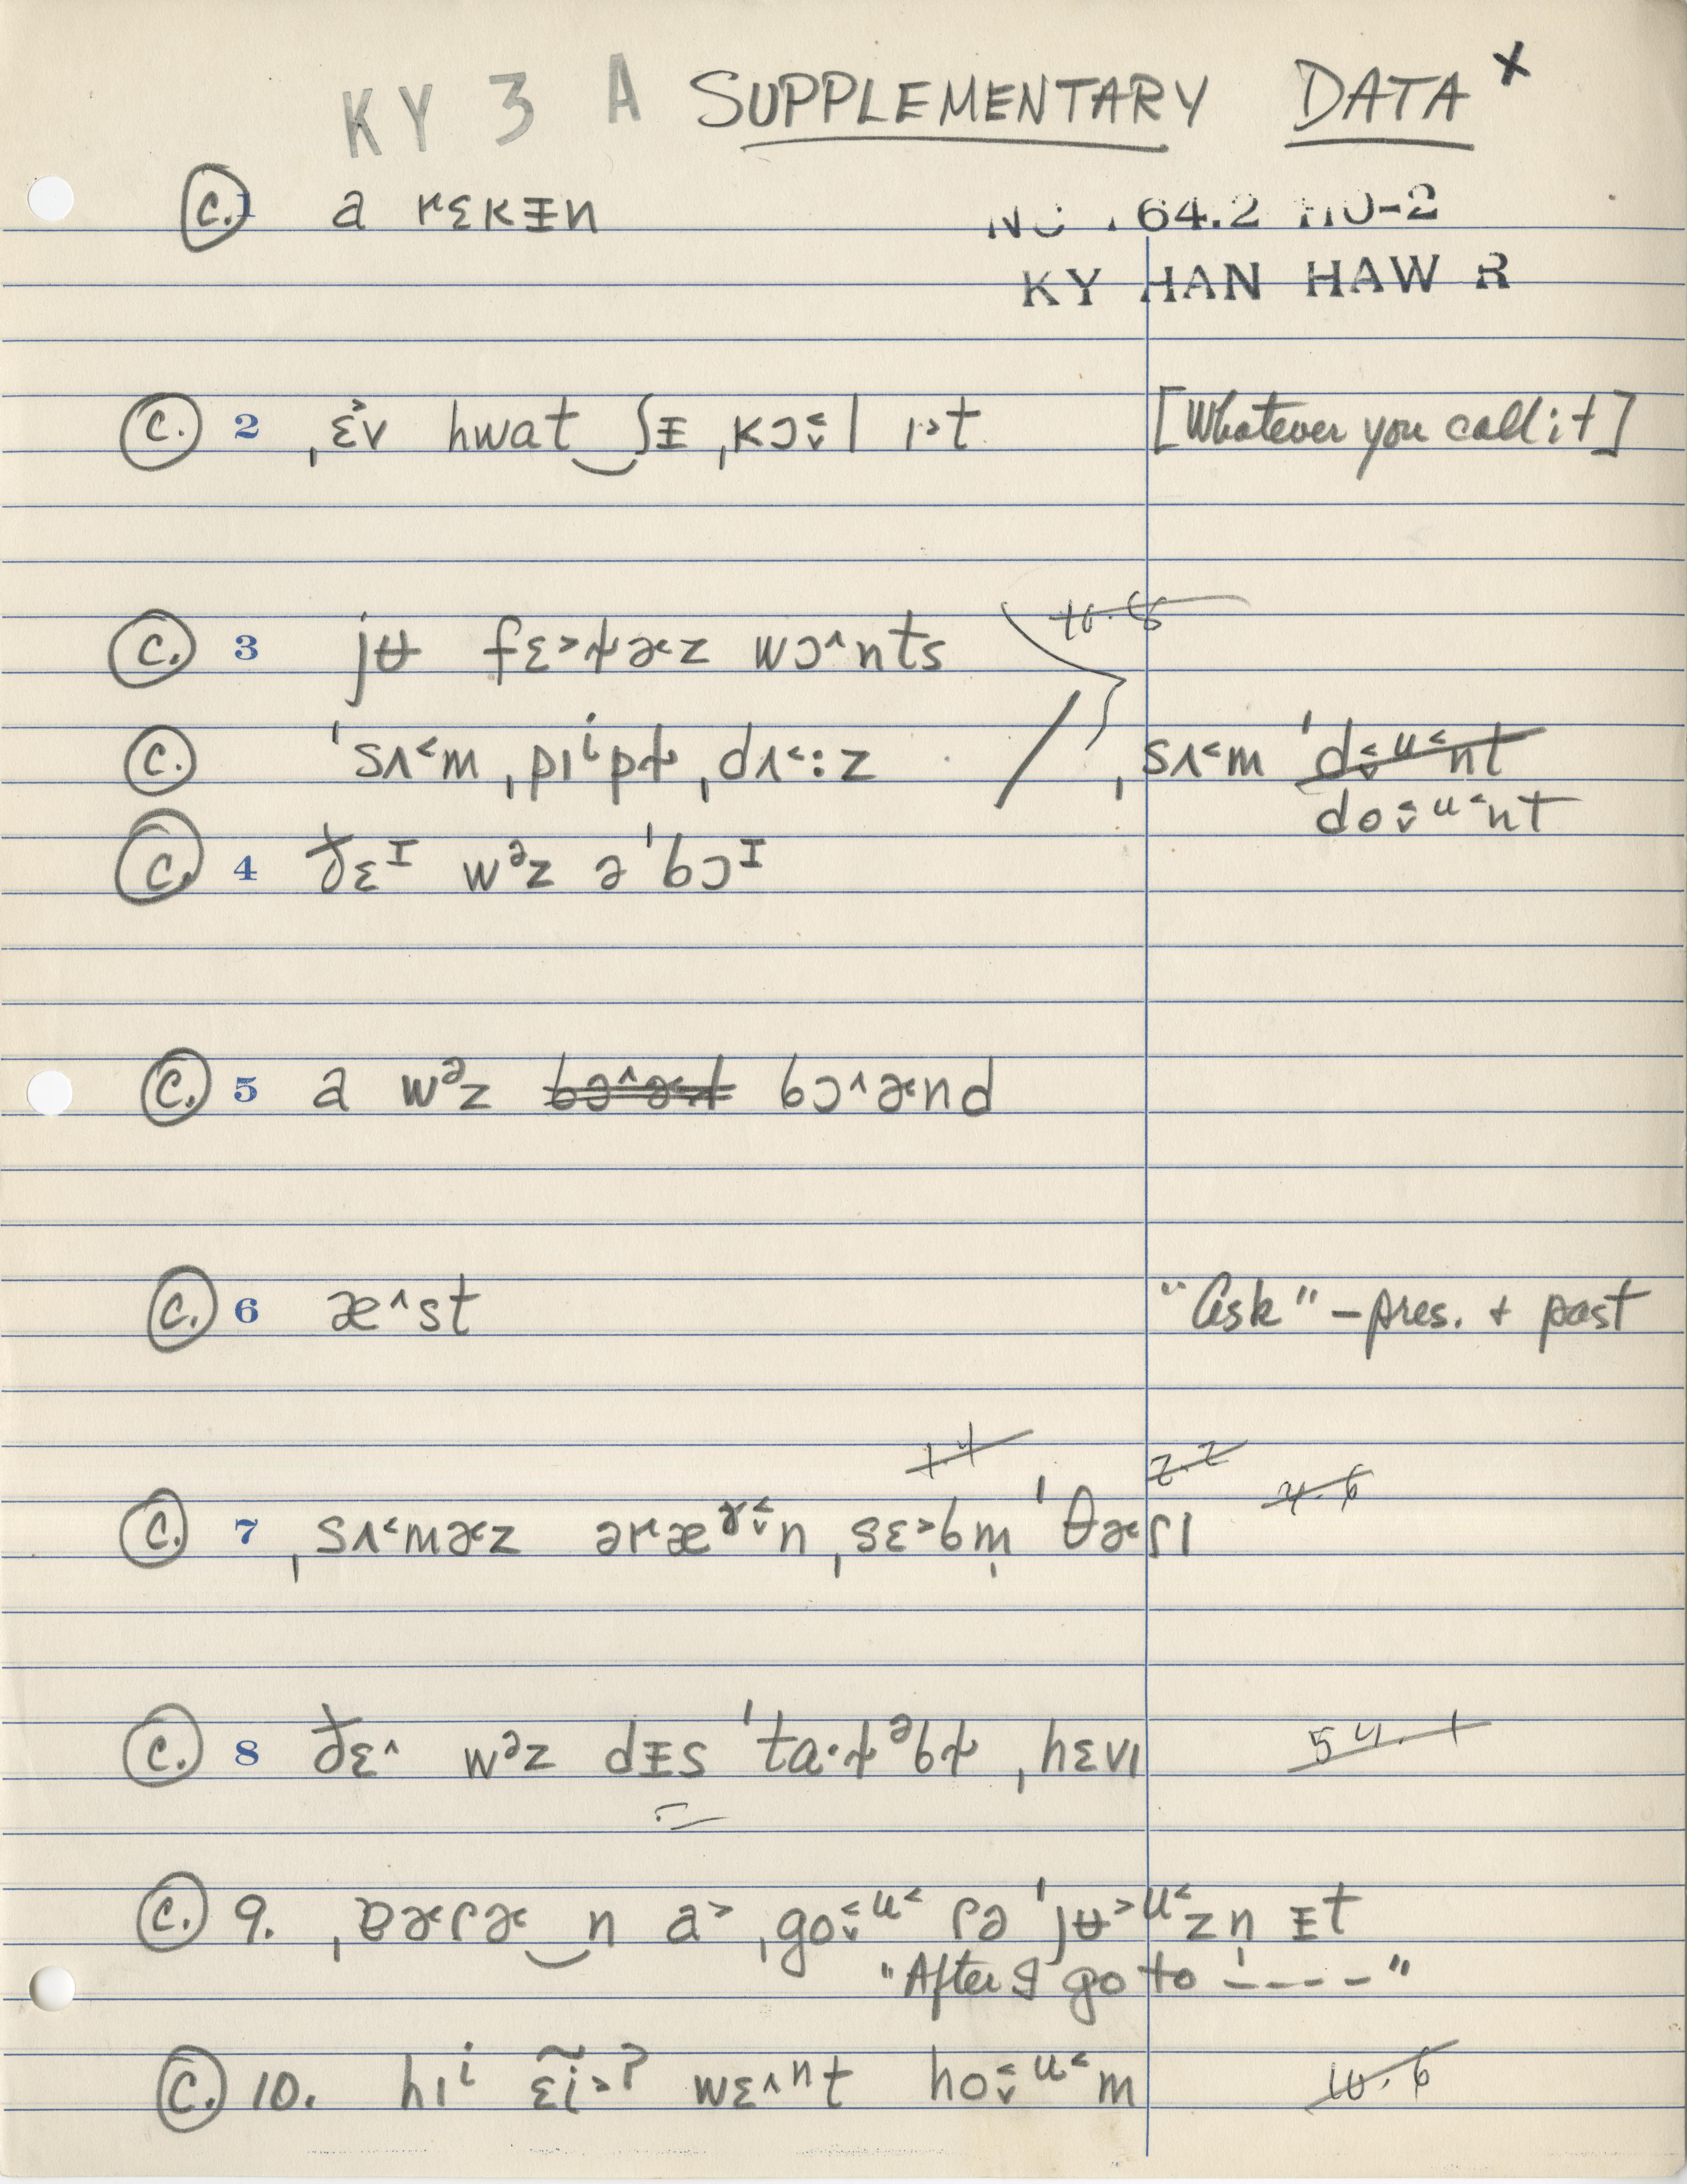 KY 3 A SUPPLEMENTARY DATA x
C. 1 a rɛkᵻn
64.2 HU-2
KY HAN HAW R
C. 2 ˌɛ˃v hwat‿ʃᵻ ˌkɔ˅˂l ɪ˃t [Whatever you call it]
C. 3 jʉ fɛ˃ɫɚz wɔ˄nts
C. ˈsʌ˂m ˌpɪⁱpɫ ˌdʌ˂ːz / ˌsʌ˂m ˈdo˅˂ᵘ˂nt
C. 4 ð̵ɛᴵ wᵊz əˈbɔᴵ
C. 5 a wᵊz bɔ˄ɚnd
C. 6 æ˄st "Ask" – pres. + past
C. 7 ˌsʌ˂mɚz ˌsɛ˃bm̩ ˈθɚɾɪ
C. 8 ðɛ˄ wᵊz dᵻs ˈta·ɫᵊbɫ ˌhɛvɪ 54.1
C. 9. a˃ ˌgo˅˂ᵘ˂ ɾə ˈjʉ˃ᵘ˂zn̩ ᵻt
"After I go to – – – – –"
C. 10. hɪⁱ wɛ˄ⁿt ho˅˂ᵘ˂m 10.6